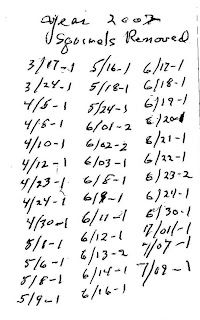 year 2007
Squirrels Removed
3/17-1 5/16-1 6/17-1
3/24-1 5/18-1 6/18-1
4/5-1 5/24-1 6/19-1
4/5-1 6/01-2 6/20-1
4/10-1 6/02-2 6/21-1
4/12-1 6/03-1 6/22-1
4/23-1 6/8-1 6/23-2
4/24-1 6/9-1 6/24-1
4/30-1 6/11-1 6/30-1
5/1-1 6/12-1 7/01-1
5/6-1 6/13-2 7/07-1
5/8-1 6/14-1 7/09-1
5/9-1 6/16-1